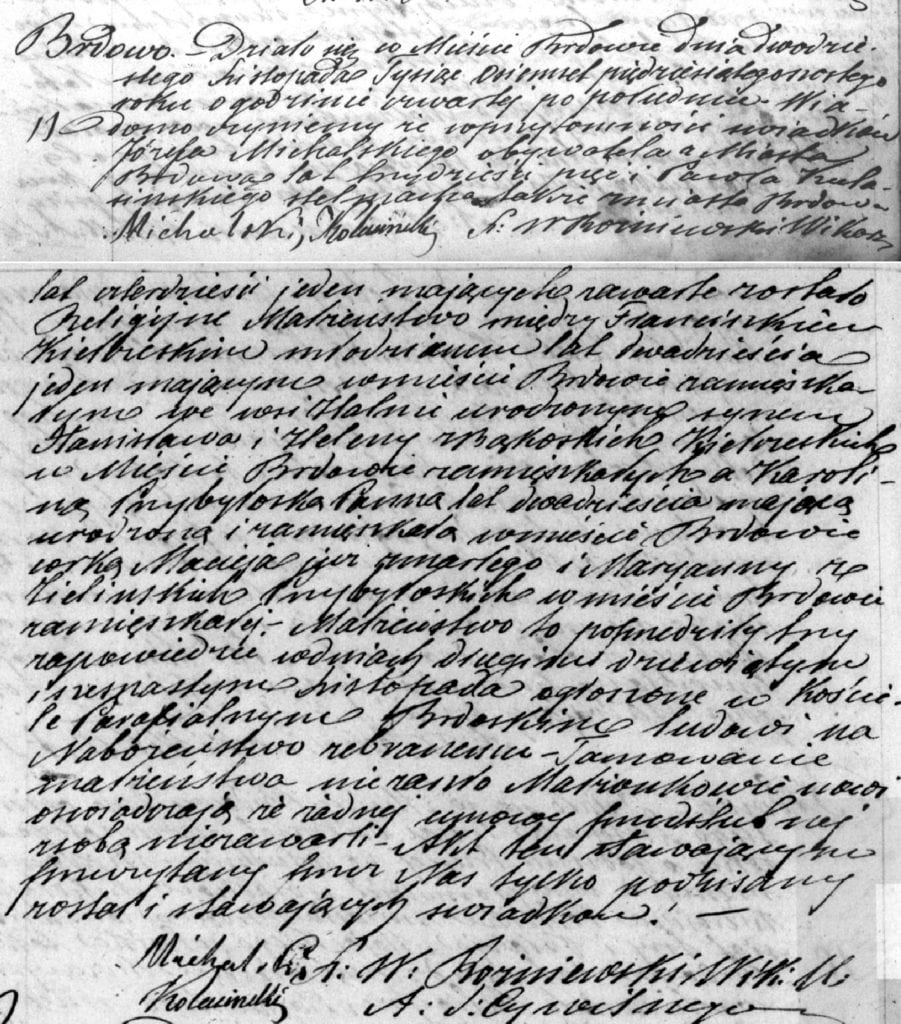 Brdowo. Działo się w Mieście Brdowie dnia dwódzie-
stego Listopada Tysiąc Ośiemset piędziesiątego szostego
roku o godzinie czwartej po południu. Wia-
11 domo czyniemy ze w przytomności świadków
Józefa Michalskiego obywatela z Miasta
Brdowa lat trzydzieści pięć i Pawła Kula-
sinskiego także z miasta Brdowa
Michalski, X. W Wikary
lat czterdzieści jeden mających zawarte zostało
Religijne Małżeństwo między Franciszkiem
Kiełbeskim młodzianem lat dwadzieścia
jeden mającym w mieście Brdowie zamięszka-
łym we wsi urodzonym synem
Stanisława i Heleny z Bąkoskich
w Mieście Brdowie zamięszkałych a Karoli-
ną Przybylską Panną lat dwadzieścia mającą
urodzoną i zamięszkałą w mieście Brdowie
corką Macieja już zmarłego i Maryanny z
Zielinskich Przybyłoskich w mieście Brdowie
zamięszkałej. Małżeństwo to poprzedziły trzy
zapowiedzie w dniach drugim dziewiątym
i szesnastym Listopada ogłoszone w Koście-
le Parafialnym Brdoskim ludowi na
Nabożeństwo zebranemu - Tamowanie
małżeństwa nie zaszło Małżonkowie nowi
oswiadczają ze żadnej umowy przedślubnej
z sobą niezawarli - Akt ten stawającym
przeczytany przez Nas tylko podpisany
został i stawających swiadków. —
Michalski X: W. Wik: B.
A: S: Cywilnego